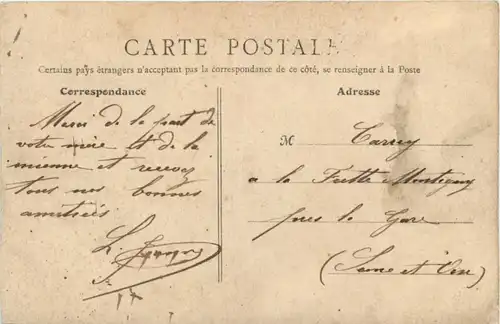 CARTE POSTALE
Certains pays étrangers n'acceptant pas la correspondance de ce côté, se renseigner à la Poste
Correspondance
Adresse
Merci de la part de
votre mère et de la
mienne et recevez
tous nos bonnes
amitiés
L.
M Carrey
a la Frette Montigny
près la Gare
(Seine et Oise)